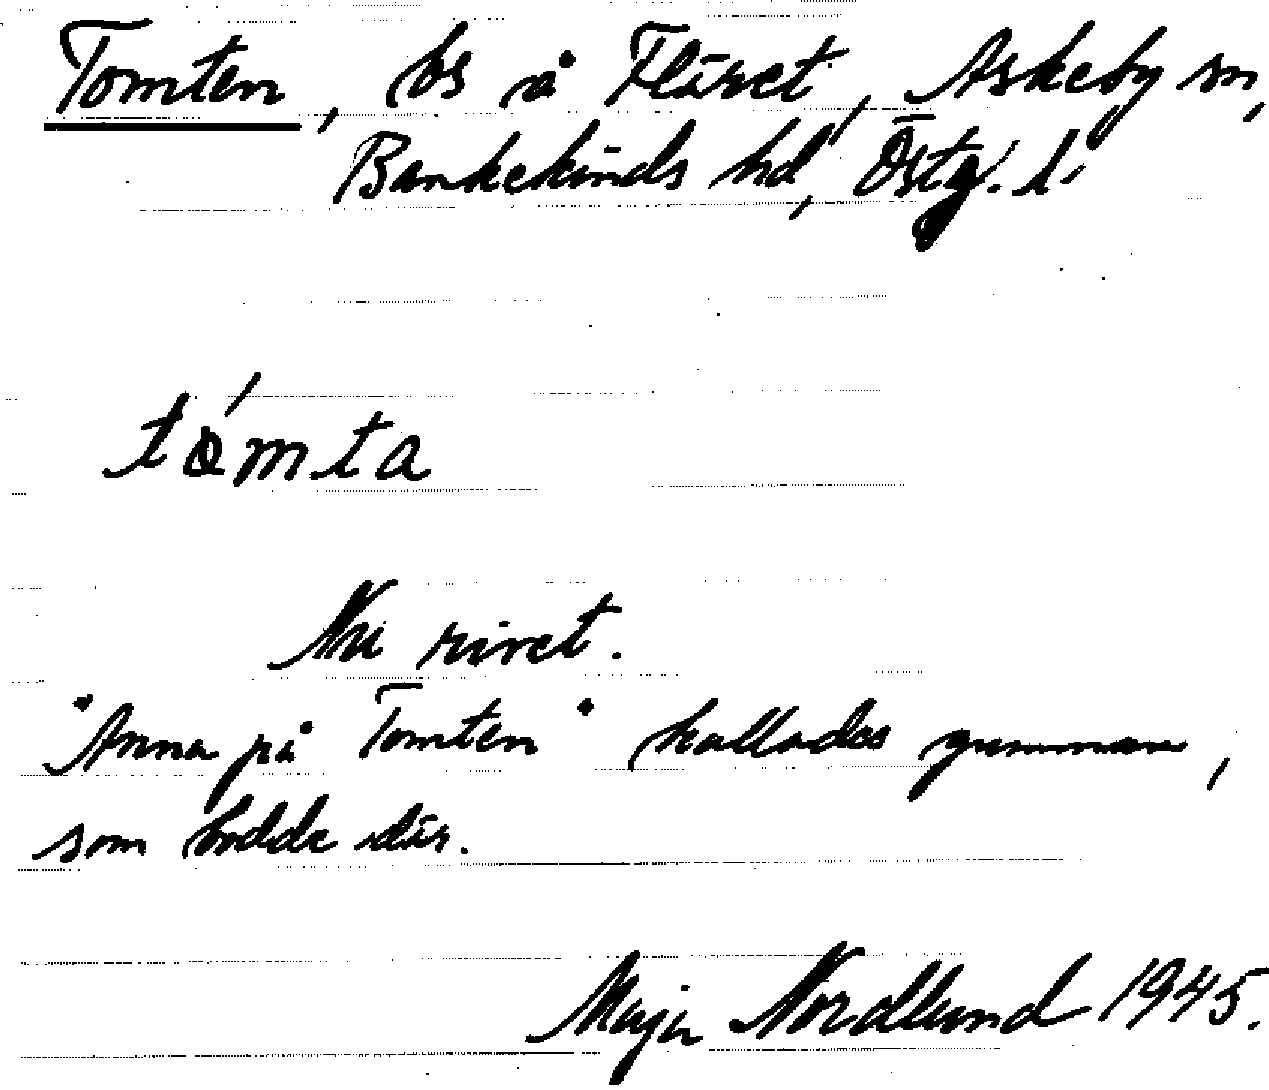 Tomten, bs å Fläret, Askeby sn,
Bankekinds hd, Östg. l.
tómta
Nu rivet.
"Anna på Tomten" kallades gumman,
som bodde där.
Maja Nordlund 1945.